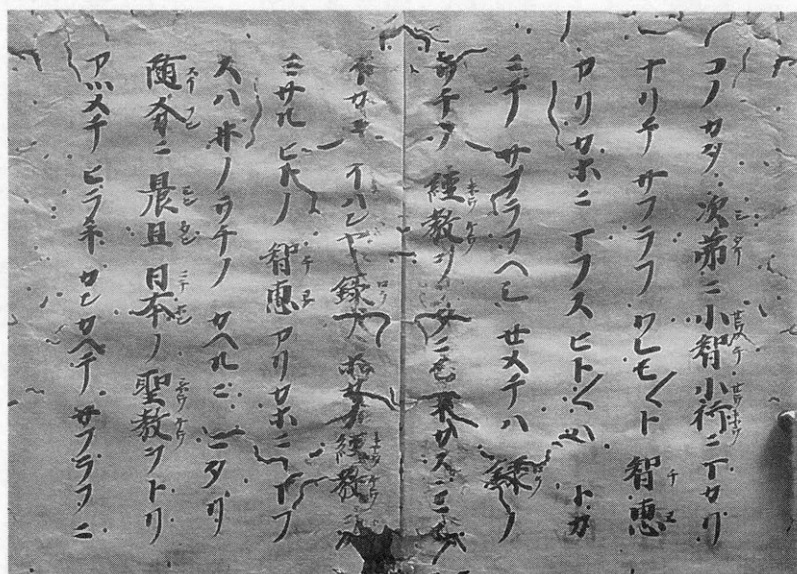 コノカタ次第ニ小智小行ニマカリ
ナリテサフラフワレモ〳〵ト智恵
アリカホニマフスヒト〳〵ハトカ
ミテサフラフヘシセメテハ録ノ
ウチノ経教ヲタニモ
イハンヤ録ノホカノ経教ヲ
ミサルヒトノ智恵アリカホニマフ
スハ井ノウチノカヘルニニタリ
随分ニ晨旦日本ノ聖教ヲトリ
アツメテヒラキカンカヘテサフラフニ